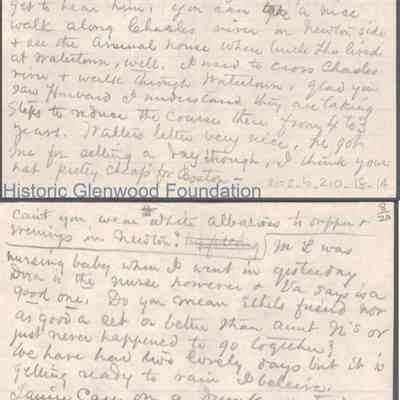 get to hear him; you can take a nice
walk along Charles river on Newton side
& see the Arsenal house when Uncle Tho lived
at Watertown, Will. I used to cross Charles
river & walk through Watertown. glad you
saw Harvard I understand they are taking
steps to reduce the Course there from 4 to 3
years. Walter's letter very nice, he got
me for selling a day though, I think your
hat pretty cheap for Boston —
Historic Glenwood Foundation
Can't you wear white to supper &
evenings in Newton? M L was
nursing baby when I went in yesterday
Dora is the nurse however & Va says is a
good one. Do you mean Ethel's friend not
as good a set or better than aunt N's or
just never happened to go together?
We have had two lovely days but it is
getting ready to rain I believe.
on a